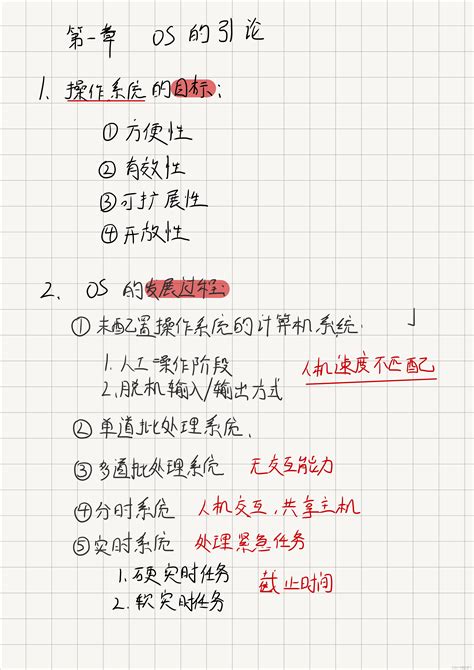 第一章 OS的引论
1. 操作系统的目标:
①方便性
②有效性
③可扩展性
④开放性
2. OS的发展过程:
①未配置操作系统的计算机系统.
1.人工操作阶段
人机速度不匹配
2.脱机输入/输出方式
②单道批处理系统.
③多道批处理系统 无交互能力
④分时系统 人机交互,共享主机
⑤实时系统 处理紧急任务
1.硬实时任务
截止时间
2.软实时任务